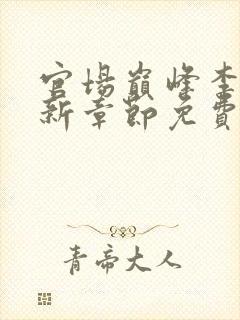 官場巔峰李
新章節免費
青帝大人